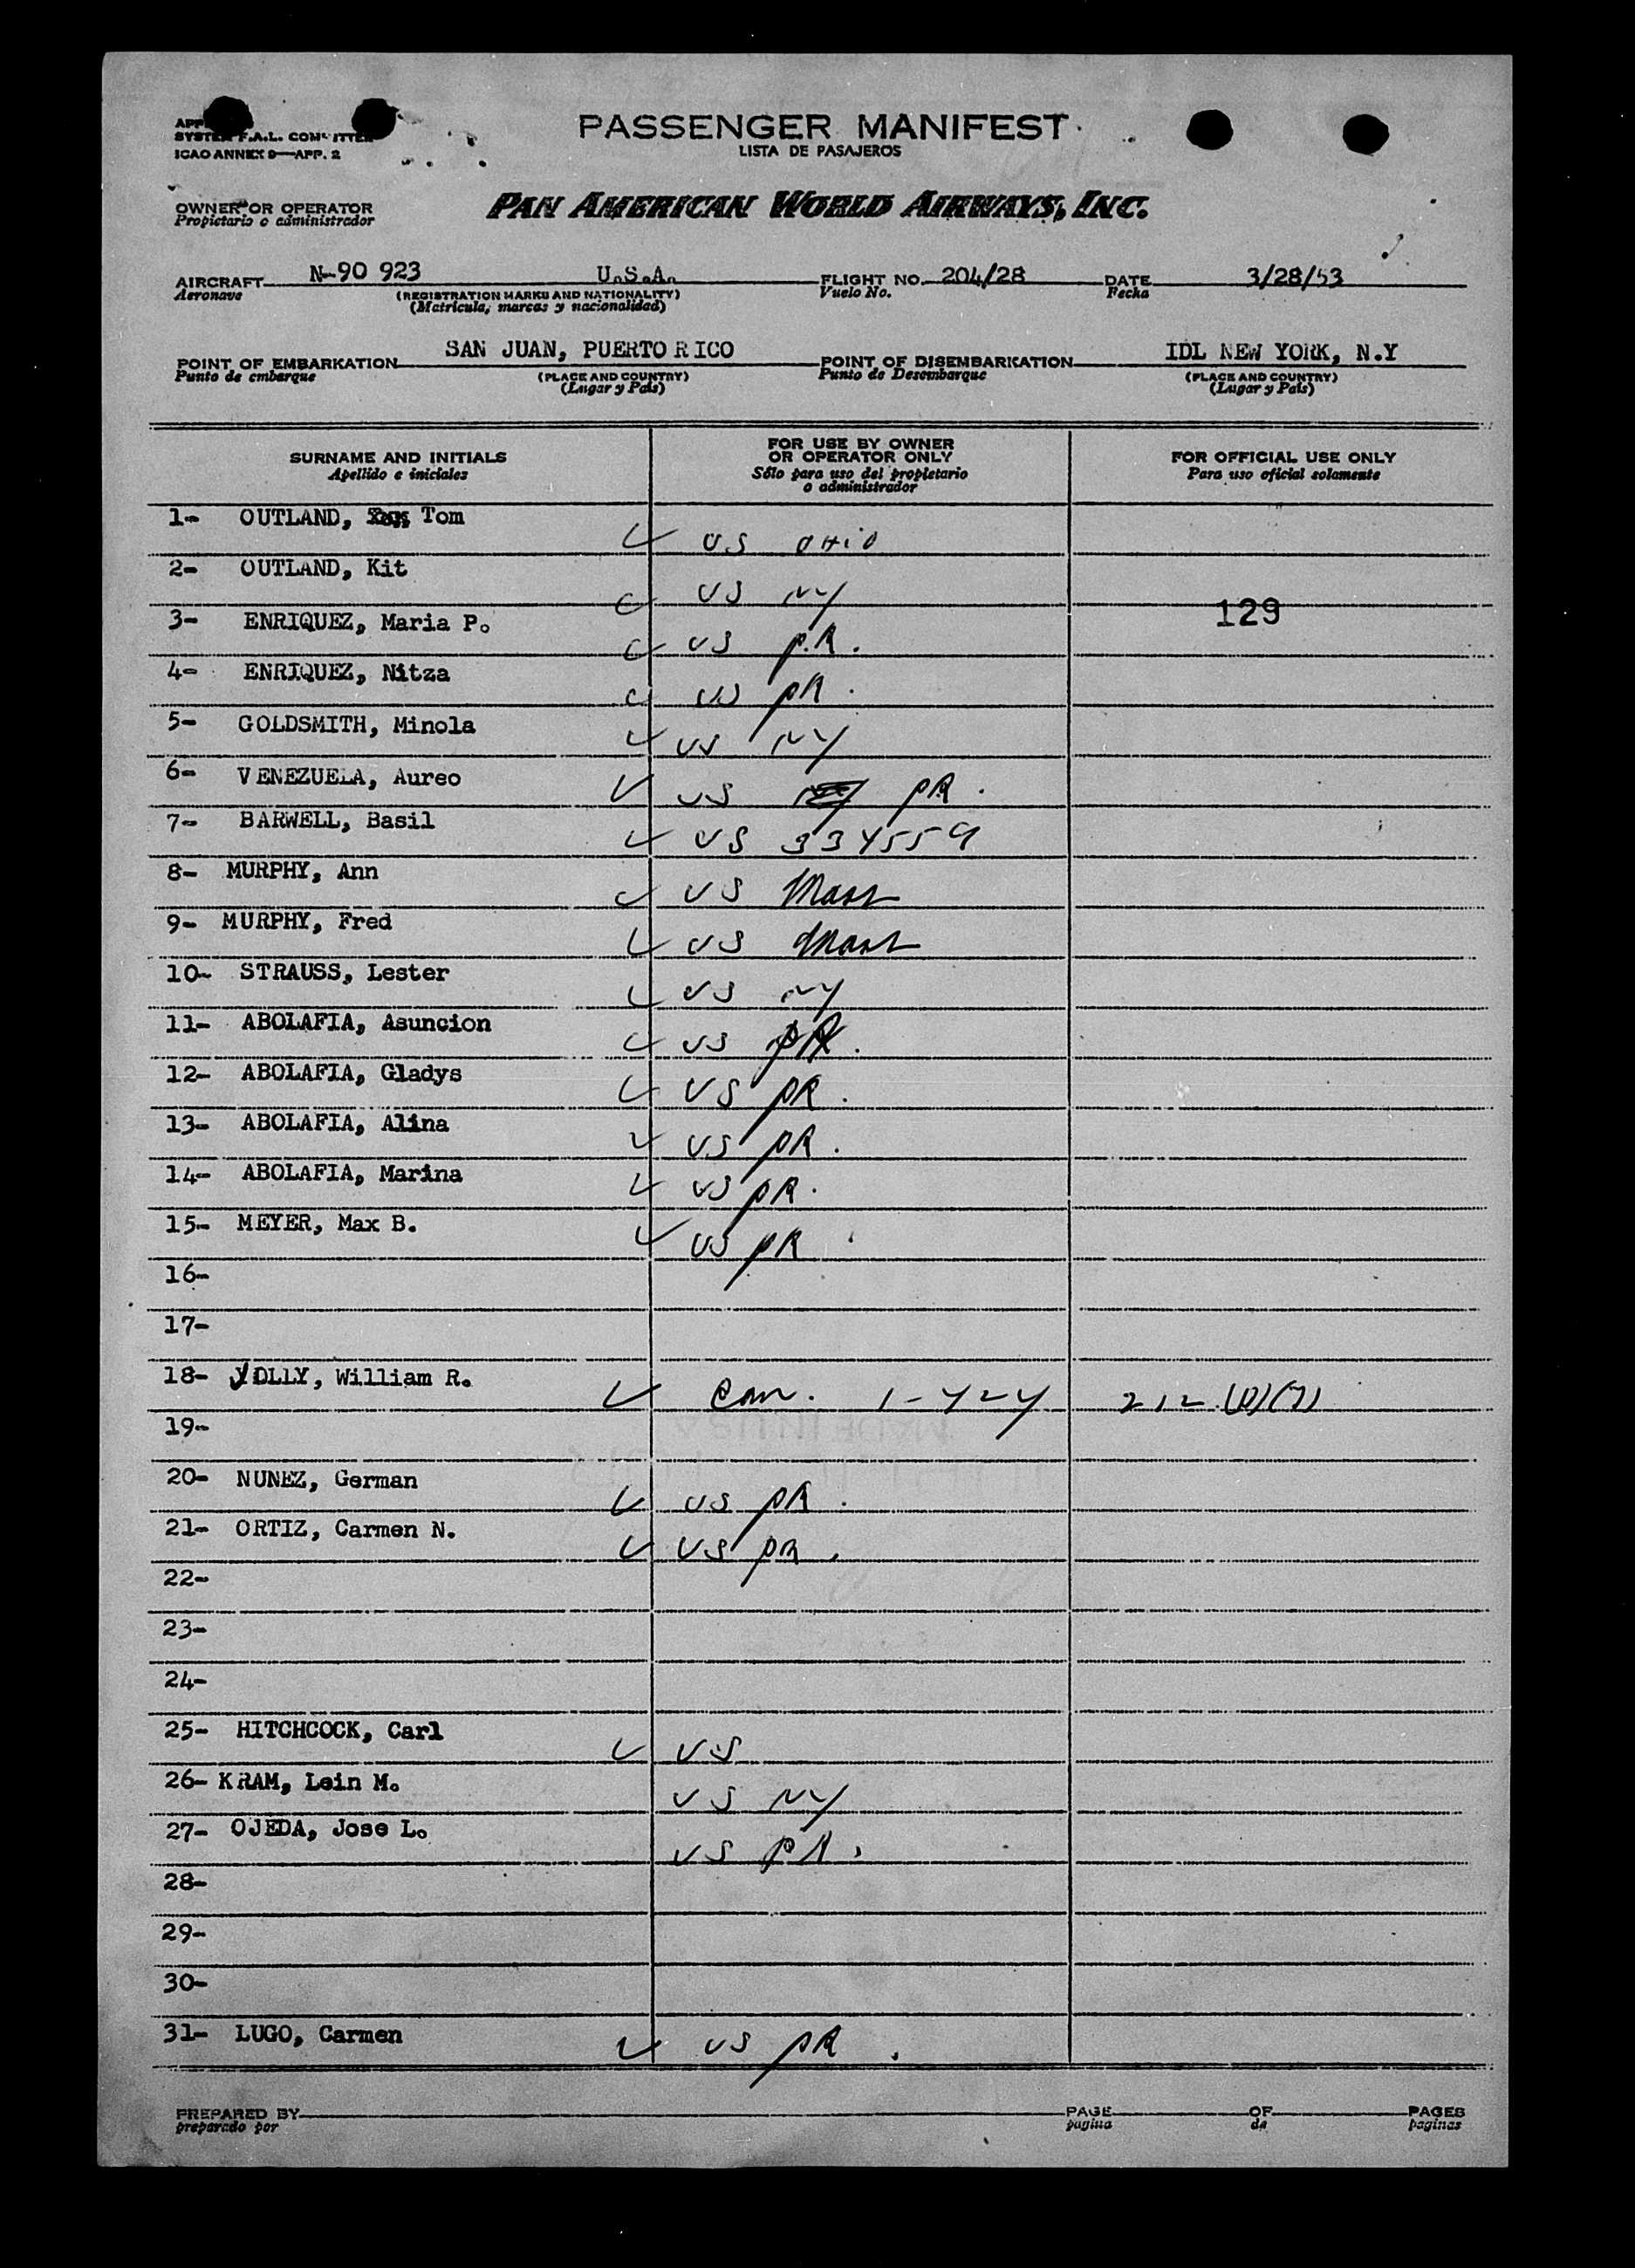 PASSENGER MANIFEST
LISTA DE PASAJEROS
SYSTEM F.A.L. COMMITTEE
ICAO ANNEX 9—APP. 2
OWNER OR OPERATOR
Propietario o administrador
PAN AMERICAN WORLD AIRWAYS, INC.
AIRCRAFT N-90 923 U.S.A. FLIGHT NO. 204/28 DATE 3/28/53
Aeronave (REGISTRATION MARKS AND NATIONALITY) Vuelo No. Fecha
(Matricula, marcas y nacionalidad)
POINT OF EMBARKATION SAN JUAN, PUERTO RICO POINT OF DISEMBARKATION IDL NEW YORK, N.Y
Punto de embarque (PLACE AND COUNTRY) Punto de Desembarque (PLACE AND COUNTRY)
(Lugar y País) (Lugar y País)
SURNAME AND INITIALS
Apellido e iniciales
FOR USE BY OWNER
OR OPERATOR ONLY
Sólo para uso del propietario
o administrador
FOR OFFICIAL USE ONLY
Para uso oficial solamente
1- OUTLAND, Tom US OHIO
2- OUTLAND, Kit US NY
129
3- ENRIQUEZ, Maria P. US P.R.
4- ENRIQUEZ, Nitza US PR.
5- GOLDSMITH, Minola US NY
6- VENEZUELA, Aureo US PR.
7- BARWELL, Basil US
8- MURPHY, Ann US Mass
9- MURPHY, Fred US Mass
10- STRAUSS, Lester US NY
11- ABOLAFIA, Asuncion US PR.
12- ABOLAFIA, Gladys US PR.
13- ABOLAFIA, Alina US PR.
14- ABOLAFIA, Marina US PR.
15- MEYER, Max B. US PR
16-
17-
18- JOLLY, William R. Can.
19-
20- NUNEZ, German US PR.
21- ORTIZ, Carmen N. US PR.
22-
23-
24-
25- HITCHCOCK, Carl US
26- KRAM, Lein M. US NY
27- OJEDA, Jose L. US PR.
28-
29-
30-
31- LUGO, Carmen US PR.
PREPARED BY PAGE OF PAGES
preparado por pagina de paginas